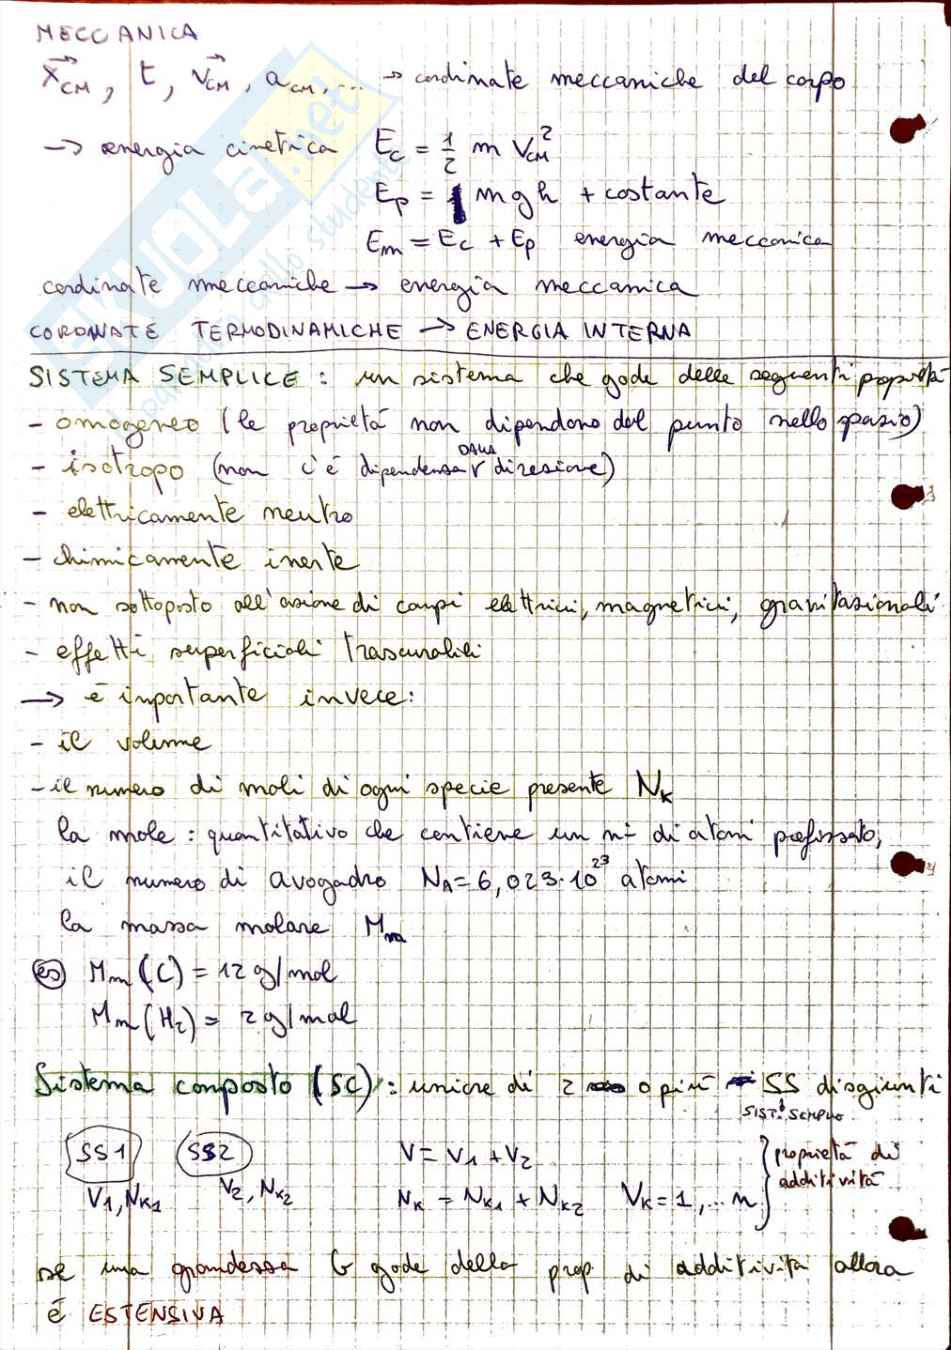 MECCANICA
x⃗CM, t, v⃗CM, aCM, ... → cordinate meccaniche del corpo
→ energia cinetica Ec = 1/2 m VCM²
Ep = mgh + costante
Em = Ec + Ep energia meccanica
cordinate meccaniche → energia meccanica
CORDINATE TERMODINAMICHE → ENERGIA INTERNA
SISTEMA SEMPLICE : un sistema che gode delle seguenti proprietà
- omogeneo (le proprietà non dipendono dal punto nello spazio)
- isotropo (non c'è dipendenza DALLA direzione)
- elettricamente neutro
- chimicamente inerte
- non sottoposto all'azione di campi elettrici, magnetici, gravitazionali
- effetti superficiali trascurabili
→ è importante invece:
- il volume
- il numero di moli di ogni specie presente NK
la mole : quantitativo che contiene un n° di atomi prefissato,
il numero di avogadro NA = 6,023·10²³ atomi
la massa molare Mm
es) Mm (C) = 12 g/mol
Mm (H2) = 2 g/mol
Sistema composto (SC) : unione di 2 o più SS disgiunti
SIST. SEMPLICE
SS1 SS2 V = V1 + V2 proprietà di
V1, NK1 V2, NK2 NK = NK1 + NK2 ∀K = 1, ... n additività
se una grandezza G gode della prop. di additività allora
è ESTENSIVA
SKUOLA.net